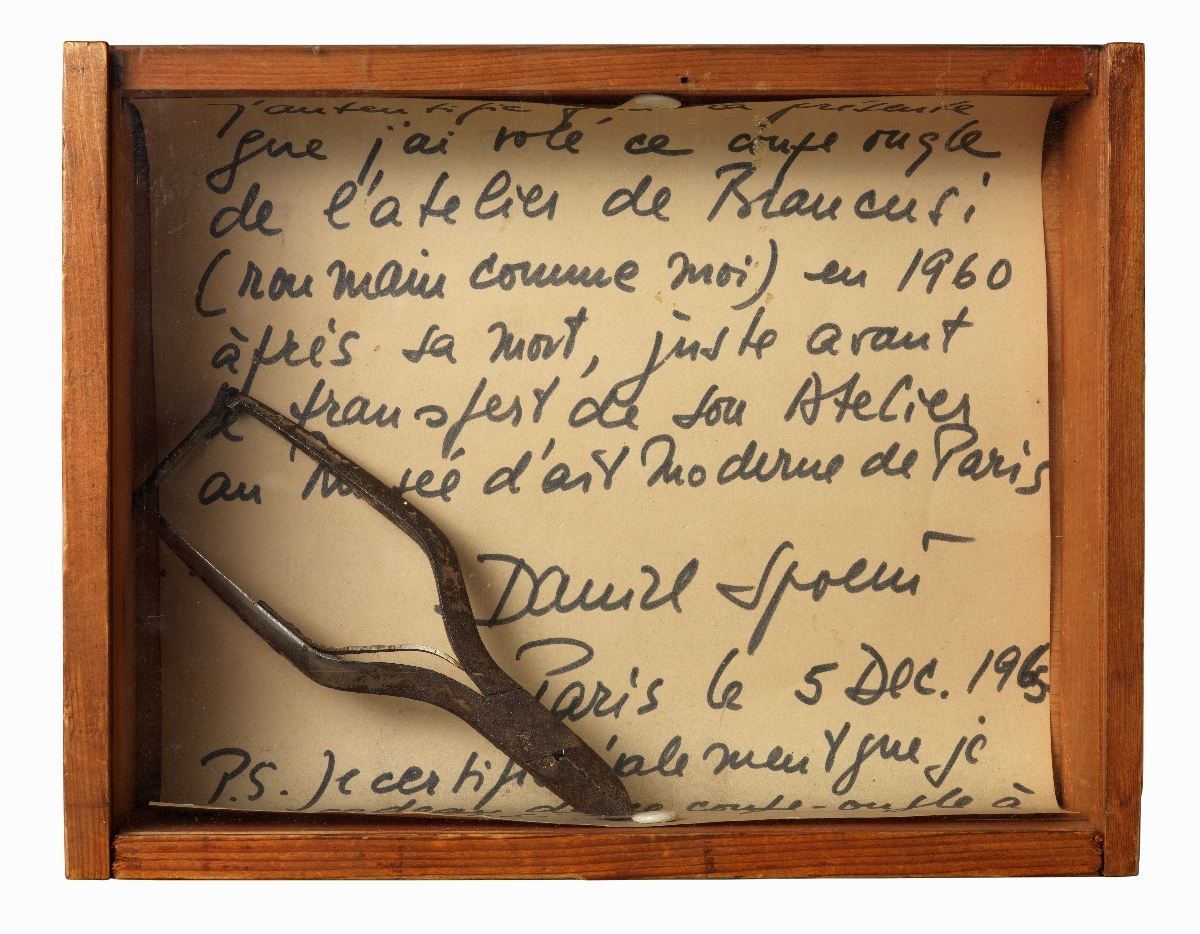 j'autentifie par la présente
que j'ai volé ce coupe ongle
de l'atelier de Brancusi
(roumain comme moi) en 1960
àprès sa mort, juste avant
le transfert de son Atelier
au Musée d'art Moderne de Paris
Daniel Spoerri
Paris le 5 Dec. 1965
P.S. Je certifie également que je
cadeau de ce coupe-ongle à